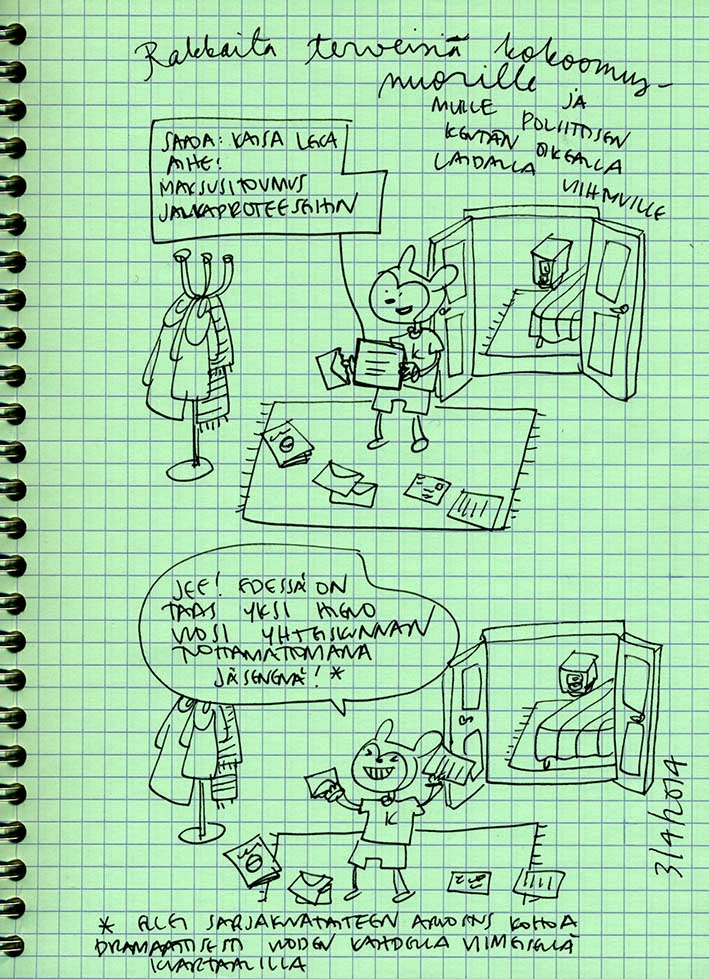 Rakkaita terveisiä kokoomus-
nuorille
ja
MUILLE POLIITTISEN
KENTÄN OIKEALLA
LAIDALLA VIIHTYVILLE
SAAJA: KAISA LEKA
AIHE:
MAKSUSITOUMUS
JALKAPROTEESEIHIN
K
JEE! EDESSÄ ON
TAAS YKSI HIENO
VUOSI YHTEISKUNNAN
TUOTTAMATTOMANA
JÄSENENÄ! *
K
3/4/2014
* ELLEI SARJAKUVATAITEEN ARVOSTUS KOHOA
DRAMAATTISESTI VUODEN KAHDELLA VIIMEISELLÄ
KVARTAALILLA